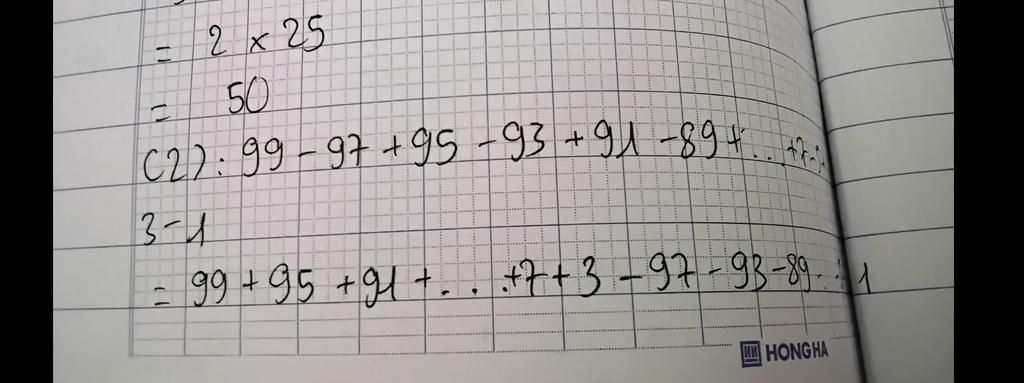 = 2 × 25
= 50
(2): 99 - 97 + 95 - 93 + 91 - 89 + ... + 7 -
3 - 1
= 99 + 95 + 91 + ... + 7 + 3 - 97 - 93 - 89 ... - 1
HONG HA